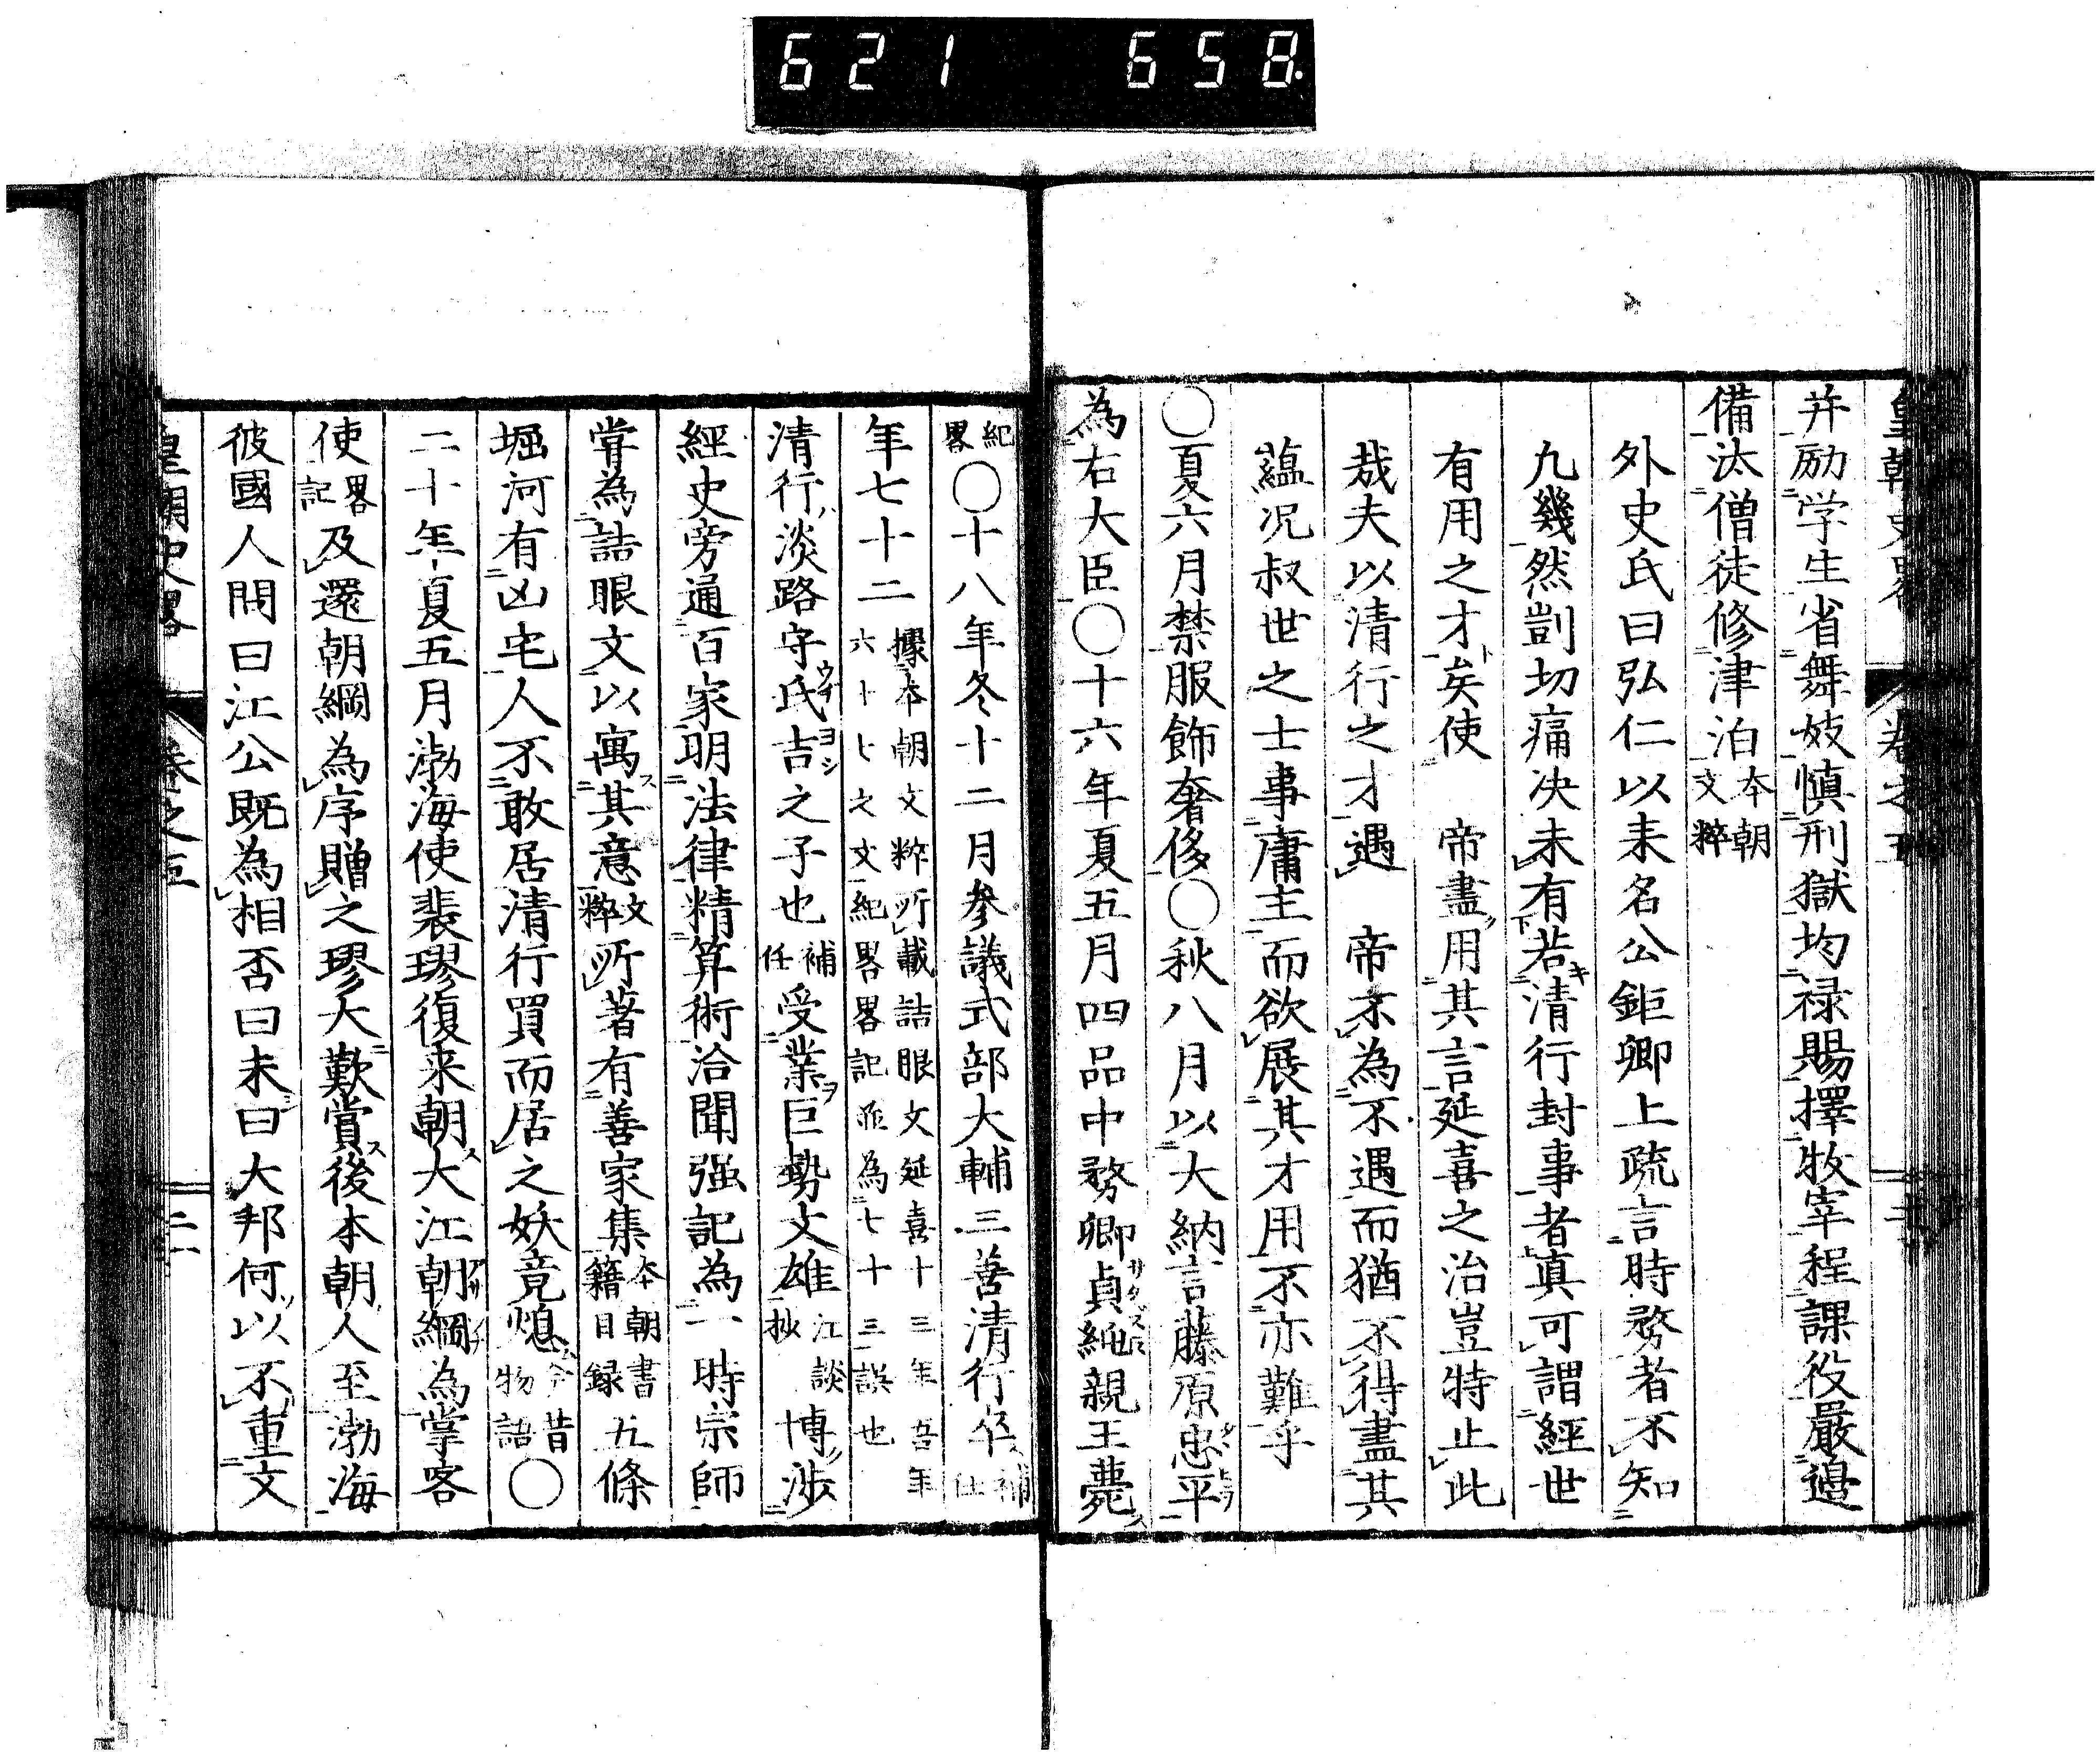 621 658.
皇朝史畧 卷之五
并励学生省舞妓慎刑獄均禄賜擇牧宰程課役嚴邉
備汰僧徒修津泊本朝文粹
外史氏曰弘仁以来名公鉅卿上疏言時務者不知
九幾然剴切痛决未有若清行封事者真可謂經世
有用之才矣使 帝盡用其言延喜之治豈特止此
哉夫以清行之才遇 帝不為不遇而猶不得盡其
蘊况叔世之士事庸主而欲展其才用不亦難乎
〇夏六月禁服飾奢侈〇秋八月以大納言藤原忠平
為右大臣〇十六年夏五月四品中務卿貞純親王薨
紀畧〇十八年冬十二月参議式部大輔三善清行卒補任
年七十二據本朝文粹所載詰眼文延喜十三年吾年六十七之文紀畧畧記並為七十三誤也
清行淡路守氏吉之子也補任受業巨勢文雄江談抄博渉
經史旁通百家明法律精算術洽聞强記為一時宗師
甞為詰眼文以寓其意文粹所著有善家集本朝書籍目録五條
堀河有凶宅人不敢居清行買而居之妖竟熄今昔物語〇
二十年夏五月渤海使裴璆復来朝大江朝綱為掌客
使畧記及還朝綱為序贈之璆大歎賞後本朝人至渤海
彼國人問曰江公既為相否曰未曰大邦何以不重文
皇朝史畧 卷之五 二